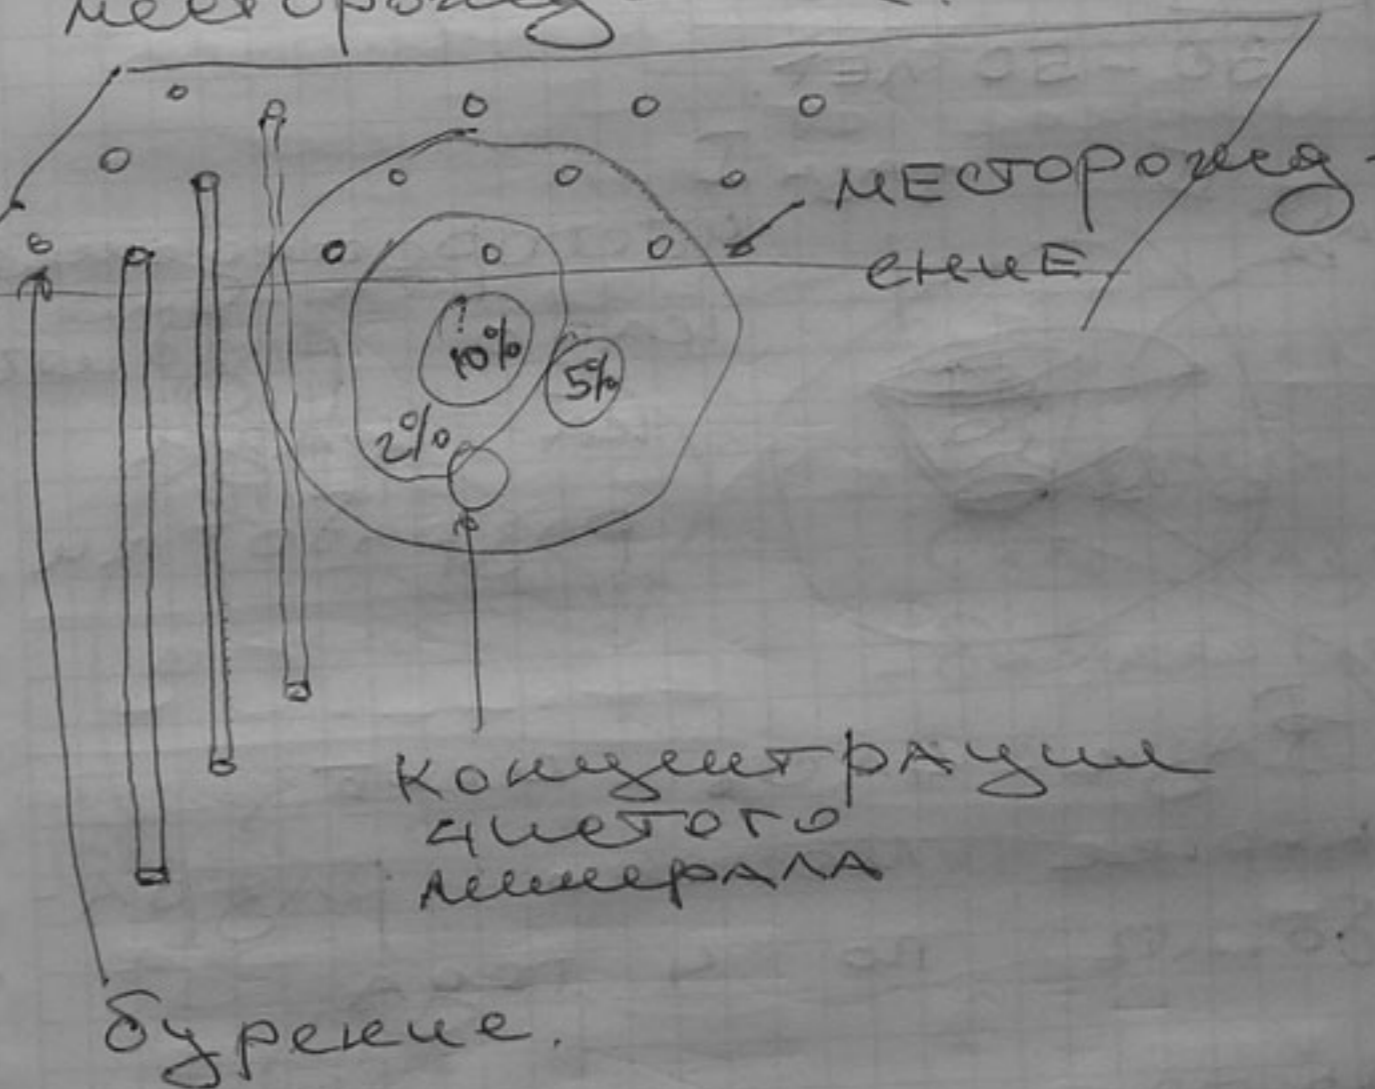 МЕСТОРОЖД-
ЕНИЕ
10%
5%
2%
концентрации
чистого
минерала
бурение.